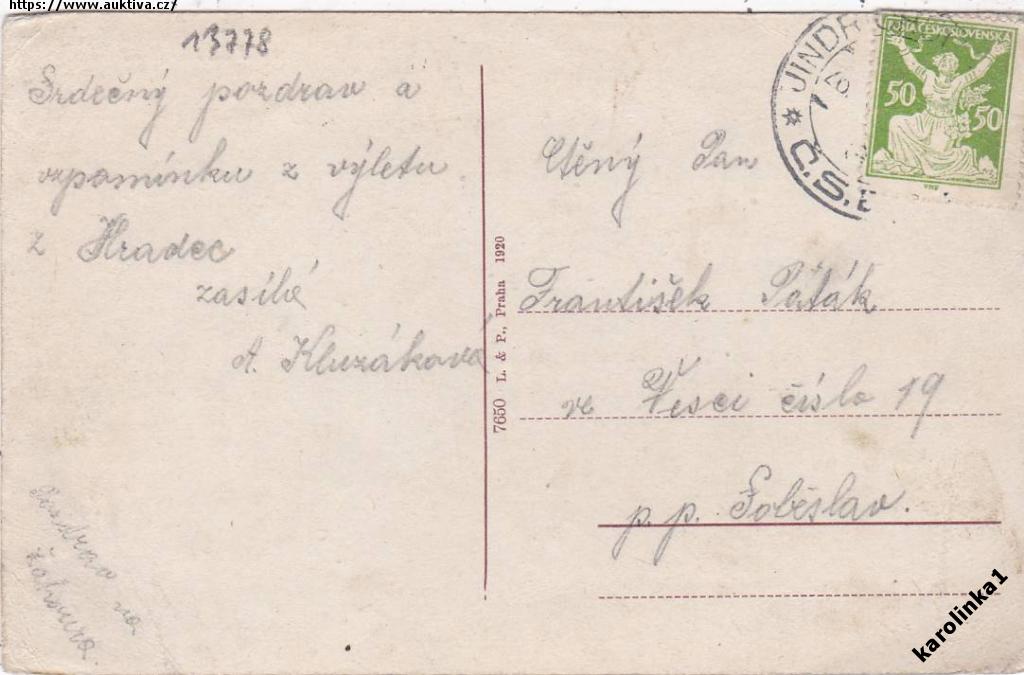 https://www.auktiva.cz/
13778
Srdečný pozdrav a
vzpomínku z výletu
z Hradec
zasílá
A. Kluzáková
Pozdrav na
7650 L. & P., Praha 1920
JINDŘ
Č.S.
POŠTA ČESKOSLOVENSKÁ
50
50
Ctěný Pan
František Paták
ve Vesci číslo 19
p. p. Soběslav.
karolinka1